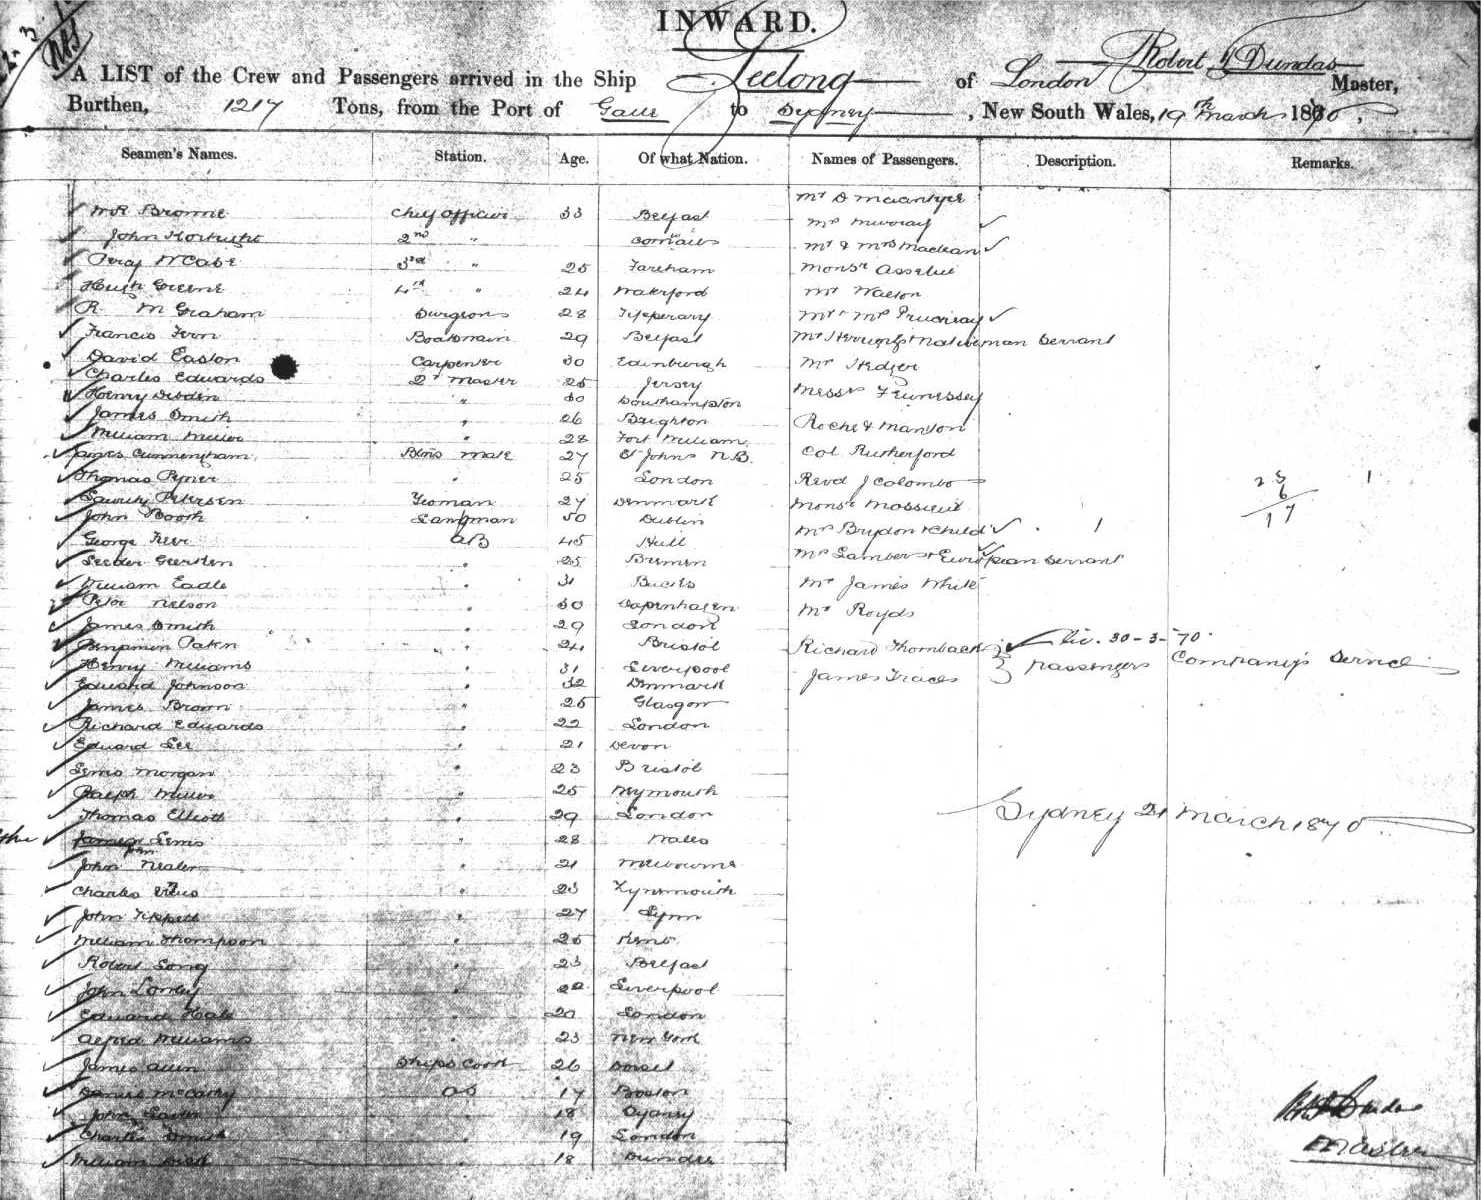 INWARD.
A LIST of the Crew and Passengers arrived in the Ship Geelong of London Robert Dundas Master,
Burthen, 1217 Tons, from the Port of Galle to Sydney, New South Wales, 19th March 1870.
Seamen's Names. Station. Age. Of what Nation. Names of Passengers. Description. Remarks.
Mr D Macintyre
Browne Chief Officer 33 Belfast
Mrs Murray
John 2nd "
Mr & Mrs Maclean
Percy McCabe 3rd " 25 Fareham Monsr
Hugh Greene 4th " 24 Waterford Mr Watson
R. M Graham Surgeon 28 Tipperary Mr
Francis Fern Boatswain 29 Belfast Mr Native man Servant
David Easton Carpenter 30 Edinburgh Mr Hedger
Charles Edwards 2r Master 25 Jersey
Henry " 30 Southampton Messrs
James Smith " 26 Brighton Roche & Manson
William Miller " 28 Fort William
James Cunningham Btns Mate 27 St Johns N.B. Col Rutherford
Thomas " 25 London Revd J Colombo
Petersen Yeoman 27 Denmark Monsr Massieu
John Booth Lampman 50 Dublin
George AB 45 Hull Mrs Brydon & Child
" 25 Bremen Mrs Lambert & European Servant
William Eadle " 31 Bucks Mr James White
Peter Nelson " 30 Copenhagen Mr Royds
James Smith " 29 London
Benjamin " 24 Bristol Richard Thornback Liv. 30-3-70.
Henry Williams " 31 Liverpool passengers Company's Service
Edward Johnson " 32 Denmark James
James Brown " 25 Glasgow
Richard Edwards " 22 London
Edward Lee " 21 Devon
Lewis Morgan " 23 Bristol
Ralph Miller " 25 Weymouth
Thomas Elliott " 29 London Sydney 21 March 1870
Lewis " 28 Wales
John
John " 21 Melbourne
Charles " 23 Tynemouth
John Tippett " 27 Lynn
William Thompson " 25 Kent
Robert Long " 23 Belfast
John " 22 Liverpool
Edward Hale " 20 London
Alfred Williams " 23 New York
James Allen Ships Cook 26 Dorset
Daniel McCarthy OS 17 Boston
John " 18 Sydney
Charles Smith " 19 London
William " 18 Dundee
Dundas
Master